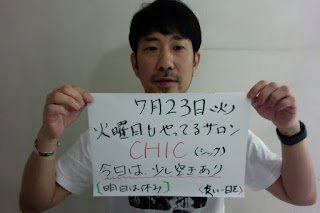 7月23日(火)
火曜日もやってるサロン
CHIC(シック)
今日は、少し空きあり
[明日は休み] <良い一日を>